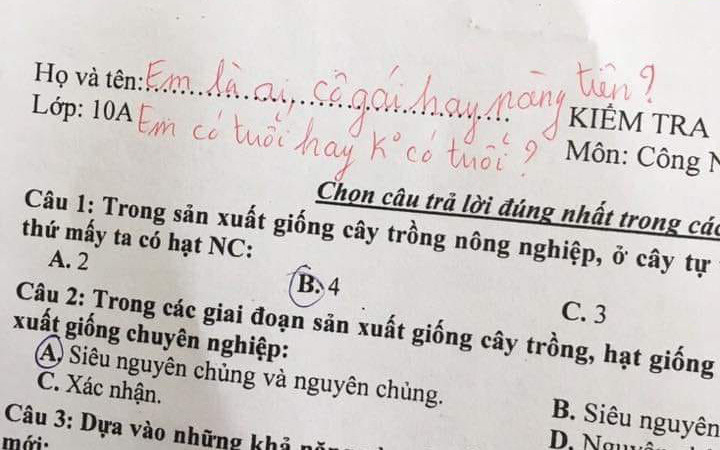 Họ và tên:.......Em là ai, cô gái hay nàng tiên?
KIỂM TRA
Lớp: 10A Em có tuổi hay k° có tuổi?
Môn: Công
Chọn câu trả lời đúng nhất trong các
Câu 1: Trong sản xuất giống cây trồng nông nghiệp, ở cây tự
thứ mấy ta có hạt NC:
A. 2 B. 4 C. 3
Câu 2: Trong các giai đoạn sản xuất giống cây trồng, hạt giống
xuất giống chuyên nghiệp:
A. Siêu nguyên chủng và nguyên chủng. B. Siêu nguyên
C. Xác nhận. D.
Câu 3: Dựa vào những khả
mới: